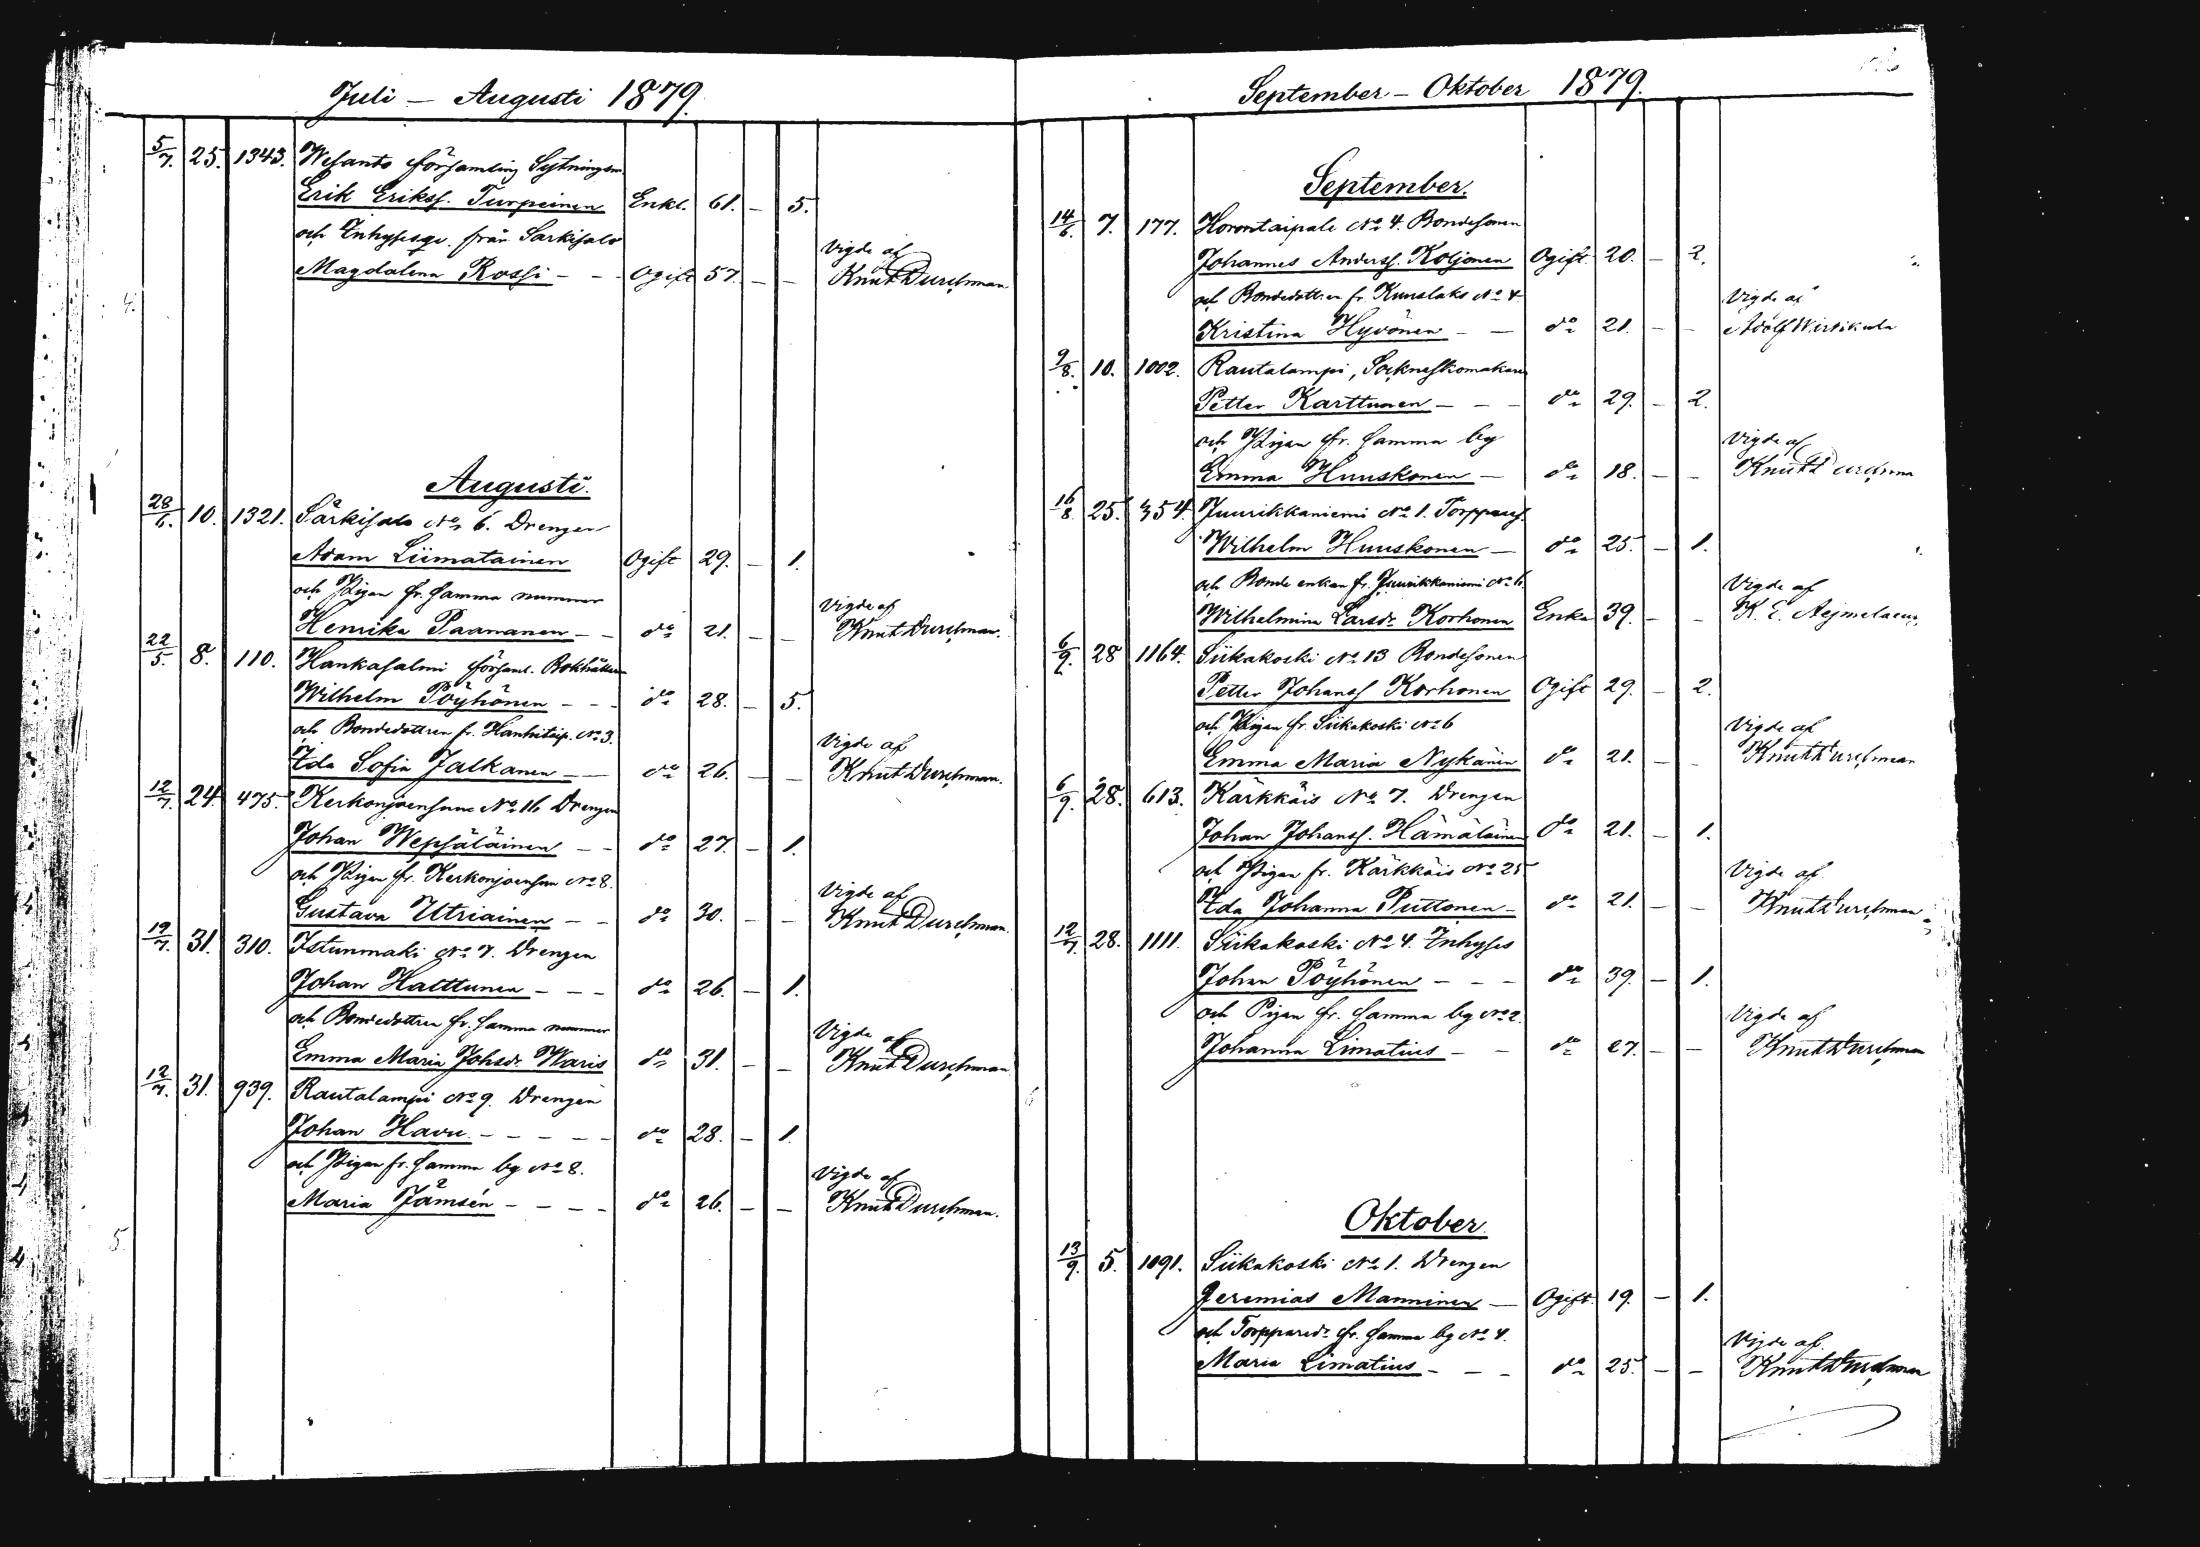 Juli — Augusti 1879.
5/7. 25. 1343. Wesanto församling Sytningsm.
Erik Erikss. Turpeinen Enkl. 61. — 5.
och Inhysesqv. från Sarkisalo Vigde af
Magdalena Rossi — — Ogift 57. — — Knut Durchman
Augusti.
28/6. 10. 1321. Särkisalo No 6. Drengen
Adam Liimatainen Ogift 29. — 1.
och Pigan fr. samma nummer Vigde af
Henrika Paananen — — do 21. — — Knut Durchman.
22/5. 8. 110. Hankasalmi församl. Bokhållaren
Wilhelm Pöyhönen — — — do 28. — 5.
och Bondedottren fr. Hanhitaip. No 3. Vigde af
Ida Sofia Jalkanen — — do 26. — — Knut Durchman.
12/7. 24. 475. Kerkonjoensuu No 16 Drengen
Johan Wepsäläinen — — do 27. — 1.
och Pigan fr. Kerkonjoensuu No 8. Vigde af
Gustava Utriainen — — do 30. — — Knut Durchman.
19/7. 31. 310. Istunmaki No 7. Drengen
Johan Halttunen — — — do 26. — 1.
och Bondedottren fr. samma nummer Vigde af
Emma Maria Johsdr Waris do 31. — — Knut Durchman
12/7. 31. 939. Rautalampi No 9. Drengen
Johan Havu — — — — — do 28. — 1.
och Pigan fr. samma by No 8. Vigde af
Maria Jämsén — — — — do 26. — — Knut Durchman.
September — Oktober 1879.
September.
14/6. 7. 177. Horontaipale No 4. Bondesonen
Johannes Anderss. Koljonen Ogift 20. — 2.
och Bondedottren fr. Kuuslaks No 4 Vigde af
Kristina Hyvönen — — do 21. — — Adolf Wirkkula
9/8. 10. 1002. Rautalampi, Sockneskomakaren
Petter Karttunen — — — do 29. — 2.
och Pigan fr. samma by Vigde af
Emma Huuskonen — do 18. — — Knut Durchman
16/8. 25. 354. Juurikkaniemi No 1. Torppareс.
Wilhelm Huuskonen — do 25. — 1.
och Bonde enkan fr. Juurikkaniemi No 6. Vigde af
Wilhelmina Larsdr Korhonen Enka 39. — — K. E. Aejmelaeus.
6/9. 28 1164. Siikakoski No 13 Bondesonen
Petter Johanss Korhonen Ogift 29. — 2.
och Pigan fr. Siikakoski No 6 Vigde af
Emma Maria Nykänen do 21. — — Knut Durchman
6/9. 28. 613. Kärkkäis No 7. Drengen
Johan Johanss. Hämäläinen do 21. — 1.
och Pigan fr. Kärkkäis No 25 Vigde af
Ida Johanna Puttonen — do 21. — — Knut Durchman
12/7. 28. 1111. Siikakoski No 4. Inhyses
Johan Pöyhönen — — — do 39. — 1.
och Pigan fr. samma by No 2. Vigde af
Johanna Limatius — — do 27. — — Knut Durchman
Oktober.
13/9. 5. 1091. Siikakoski No 1. Drengen
Jeremias Manninen — Ogift. 19. — 1.
och Torpparedr fr. samma by No 4. Vigde af
Maria Limatius — — — do 25. — — Knut Durchman